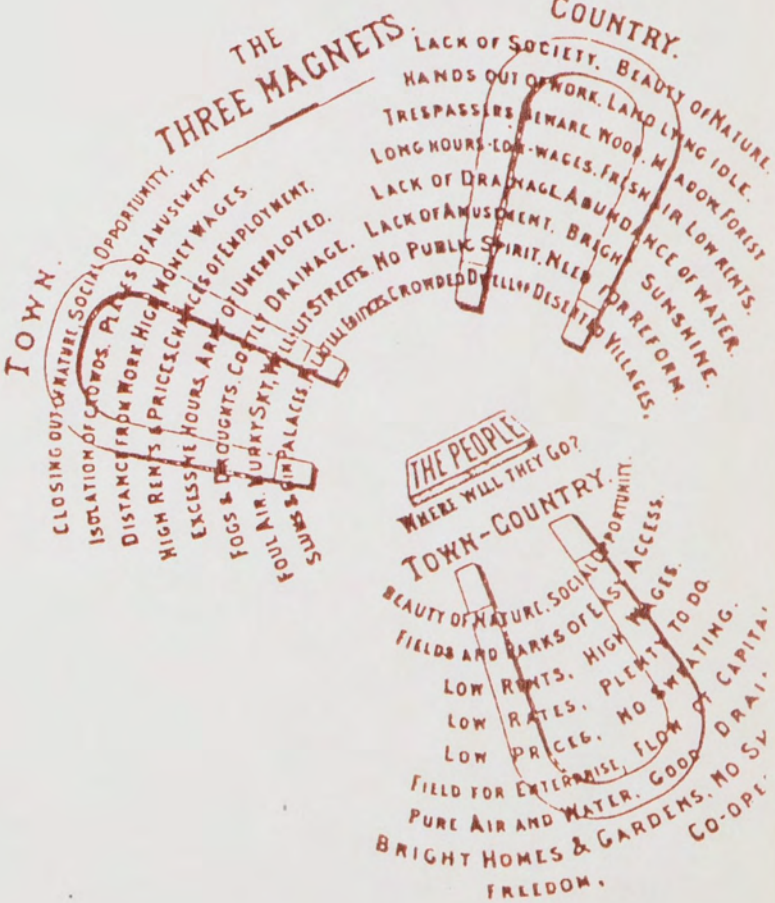 THE
THREE MAGNETS.
TOWN.
CLOSING OUT OF NATURE. SOCIAL OPPORTUNITY.
ISOLATION OF CROWDS. PLACES OF AMUSEMENT
DISTANCE FROM WORK. HIGH MONEY WAGES.
HIGH RENTS & PRICES. CHANCES OF EMPLOYMENT.
EXCESSIVE HOURS. ARMY OF UNEMPLOYED.
FOGS & DROUGHTS. COSTLY DRAINAGE.
FOUL AIR. MURKY SKY. WELL-LIT STREETS.
SLUMS & GIN PALACES. EDIFICES.
COUNTRY.
LACK OF SOCIETY. BEAUTY OF NATURE.
HANDS OUT OF WORK. LAND LYING IDLE.
TRESPASSERS BEWARE. WOOD, MEADOW, FOREST
LONG HOURS-LOW-WAGES. FRESH AIR LOW RENTS.
LACK OF DRAINAGE. ABUNDANCE OF WATER.
LACK OF AMUSEMENT. BRIGHT SUNSHINE.
NO PUBLIC SPIRIT. NEED FOR REFORM.
CROWDED DWELLGS DESERTED VILLAGES.
THE PEOPLE
WHERE WILL THEY GO?
TOWN-COUNTRY.
BEAUTY OF NATURE. SOCIAL OPPORTUNITY.
FIELDS AND PARKS OF EASY ACCESS.
LOW RENTS, HIGH WAGES.
LOW RATES, PLENTY TO DO.
LOW PRICES, NO SWEATING.
FIELD FOR ENTERPRISE, FLOW OF CAPITA
PURE AIR AND WATER. GOOD DRAI
BRIGHT HOMES & GARDENS. NO
FREEDOM. CO-OPE